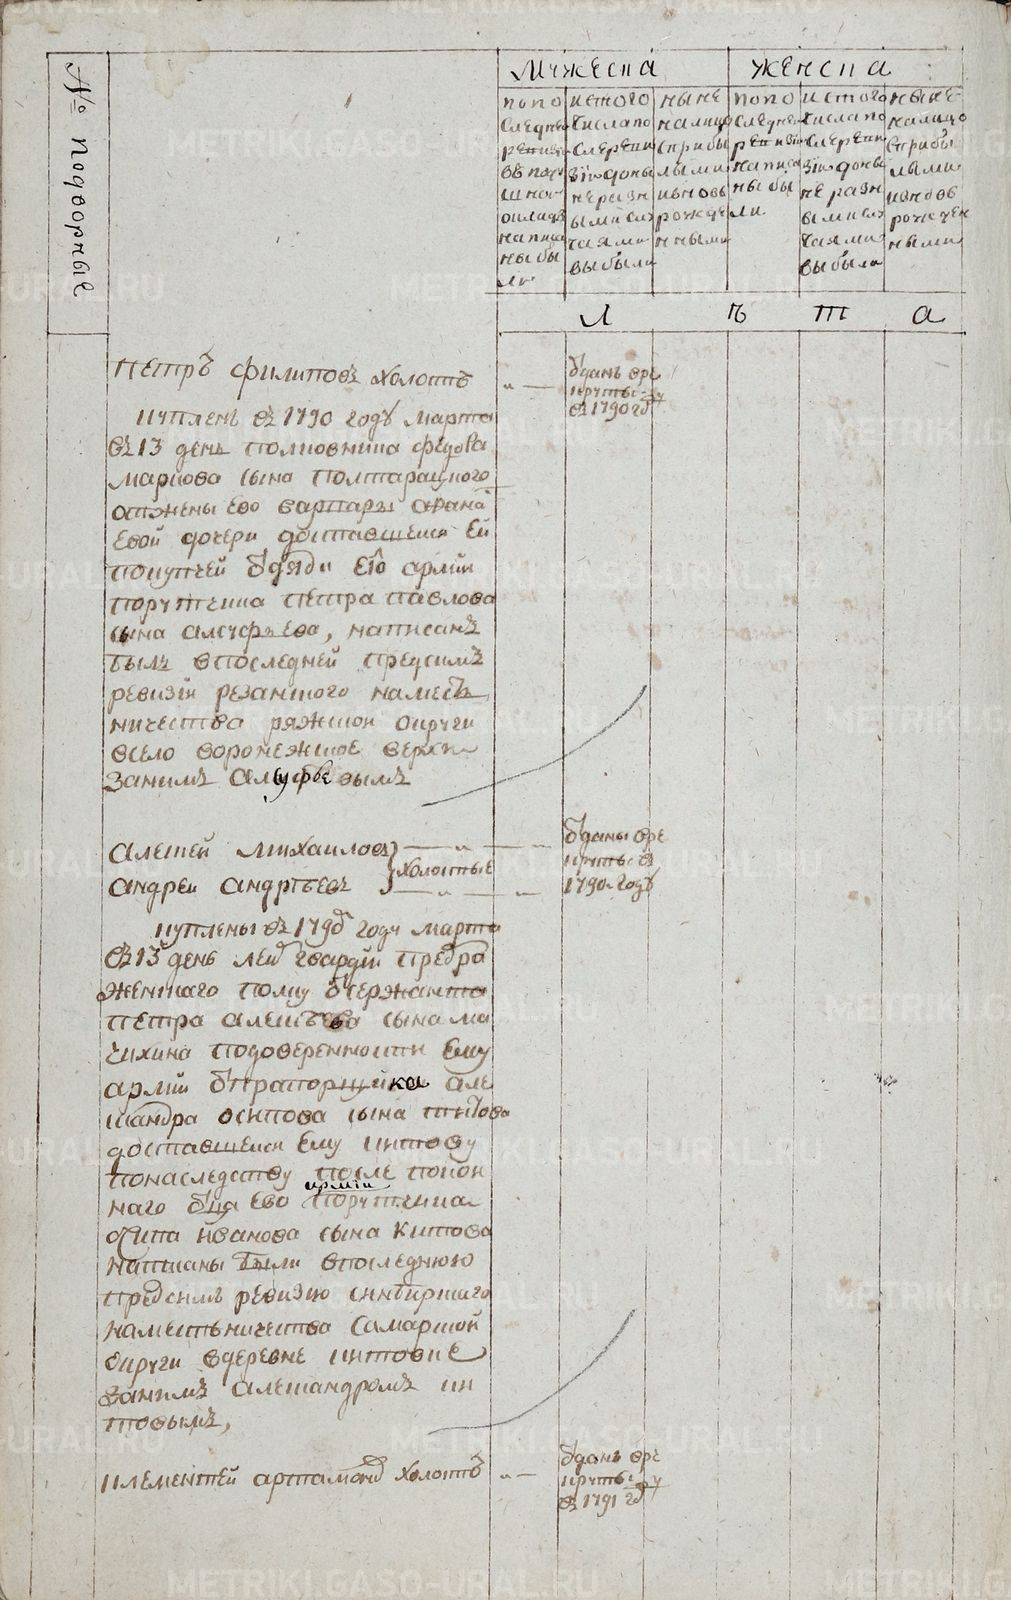 № подворные
мужеска
женска
по по
следней
ревизии
в
шной
окладъ
написа
ны бы
ли
ис того
числа по
сле реви
зии до ны
не разн
ыми слу
чаями
выбыли
ныне
на лицо
с прибы
лыми
и вновь
рожде
нными
по по
следней
ревизии
написа
ны бы
ли
ис того
числа по
сле реви
зии до ны
не разн
ыми слу
чаями
выбыли
ныне
на лицо
с прибы
лыми
и вновь
рожден
ными
л ѣ т а
петръ филиповъ холостъ
" —
ѿданъ в ре
круты
въ 1790 гѡд
купленъ въ 1790 году марта
въ 13 день полковника федора
маркова сына полтарацкого
от жены ево варвары
евой дочери доставшемся ей
покупкой ѿ дяди ево армии
порутчика петра павлова
сына алсуфьева, написанъ
былъ в последней пред симъ
ревизии резанского намест
ничества ряжской округи
в село воронежские верхи
за нимъ алсуфьевымъ
алексей михаиловъ
андреи андреевъ
холостые
ѿданы в ре
круты въ
1790 году
куплены въ 1790 году марта
въ 13 день лейб гвардии преобра
женскаго полку сержанта
петра алексеева сына ма
чихина по доверенности ему
армии ѿ прапорщика але
ксандра осипова сына китова
доставшемся ему китову
по наследству после покой
наго ѿца ево порутчика
армии
осипа иванова сына китова
написаны были в последнюю
пред симъ ревизию синбирскаго
наместъничества самарской
округи в деревне китовке
за нимъ александромъ ки
товымъ,
клементей артамонов холостъ
" —
ѿданъ в ре
круты
въ 1791 гѡд
METRIKI.GASO-URAL.RU